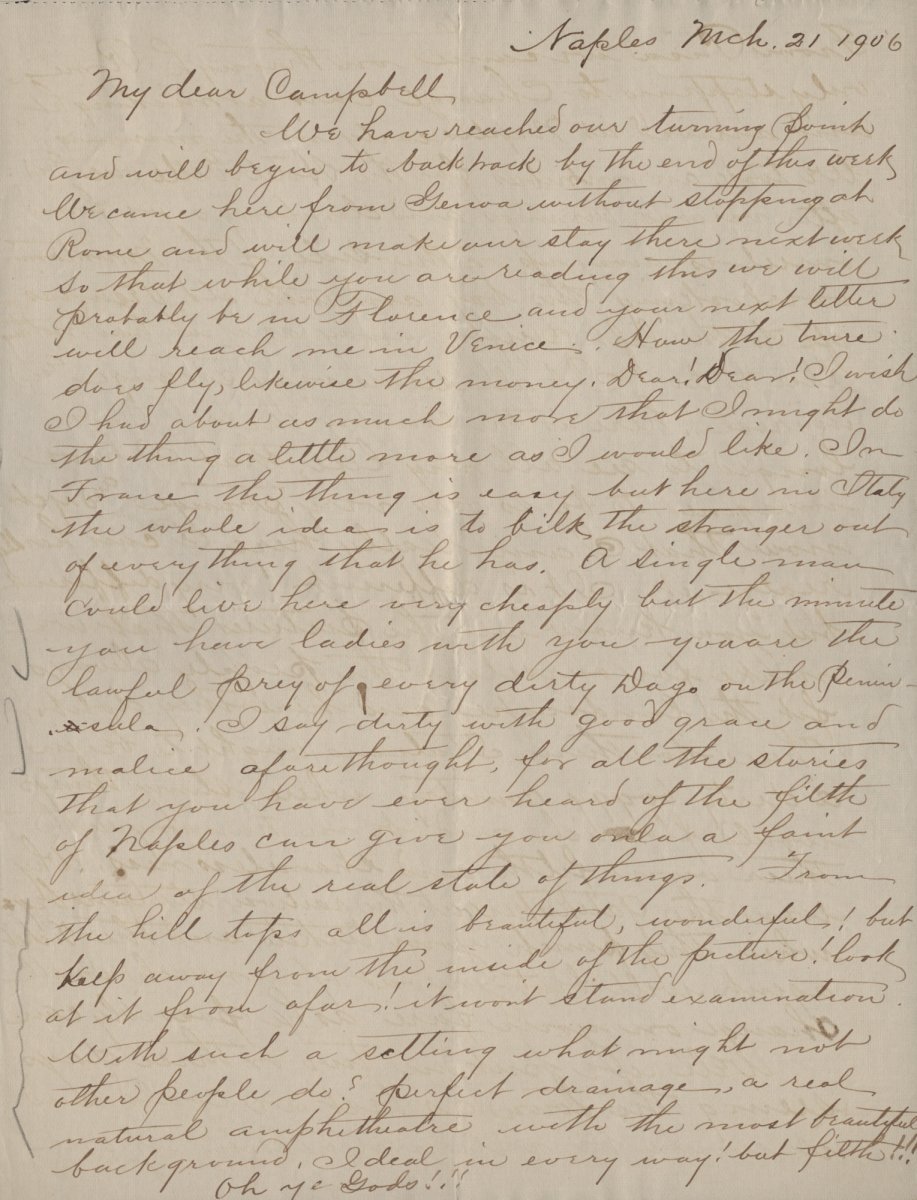 Naples Mch. 21 1906
My dear Campbell,
We have reached our turning point
and will begin to backtrack by the end of this week
We came here from Genoa without stopping at
Rome and will make our stay there next week
so that while you are reading this we will
probably be in Florence and your next letter
will reach me in Venice. How the time
does fly, likewise the money. Dear! Dear! I wish
I had about as much more that I might do
the thing a little more as I would like. In
France the thing is easy but here in Italy
the whole idea is to bilk the stranger out
of everything that he has. A single man
could live here very cheaply but the minute
you have ladies with you you are the
lawful prey of every dirty Dago on the Penin-
sula. I say dirty with good grace and
malice aforethought, for all the stories
that you have ever heard of the filth
of Naples can give you only a faint
idea of the real state of things. From
the hill tops all is beautiful, wonderful! but
keep away from the inside of the picture! look
at it from afar! it wont stand examination.
With such a setting what might not
other people do? perfect drainage, a real
natural amphitheatre with the most beautiful
background. Ideal in every way! but filth!!!
Oh ye Gods!!!